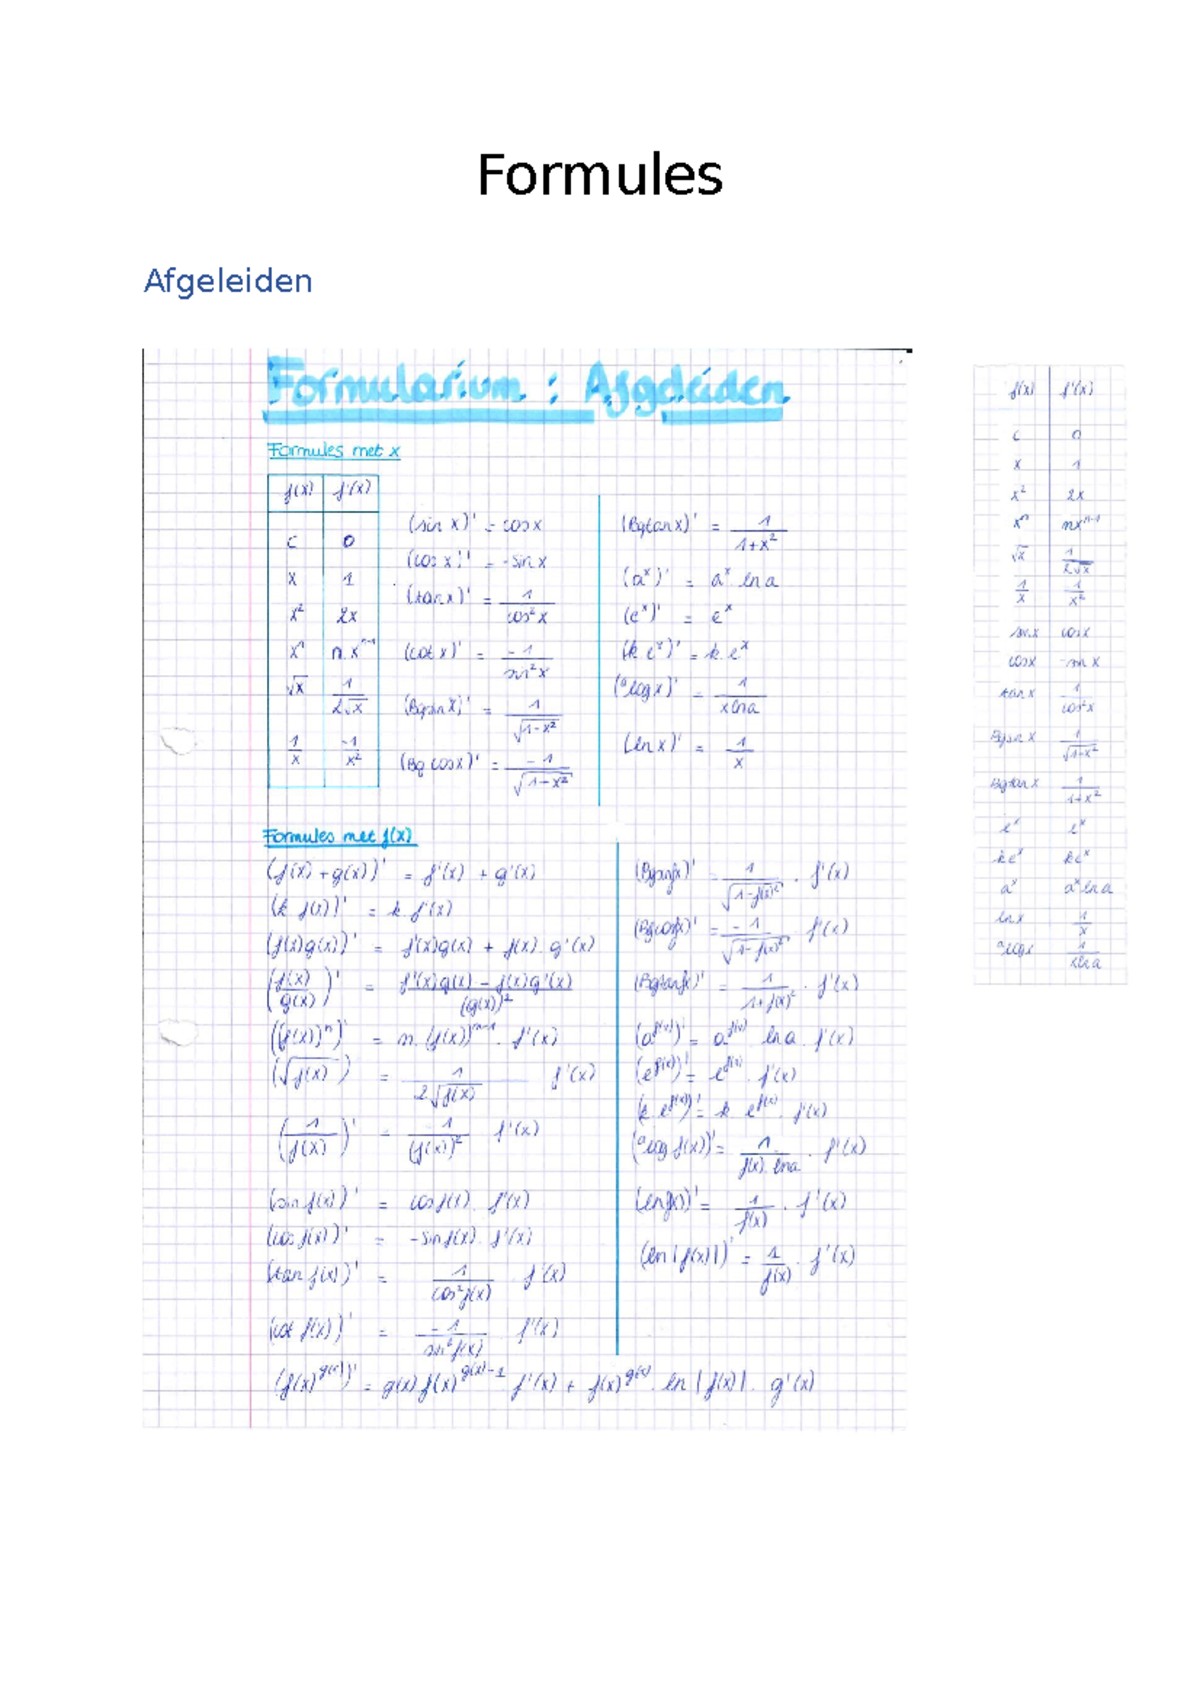 Formules
Afgeleiden
Formularium : Afgeleiden
Formules met x
f(x) f'(x)
c 0
x 1
x² 2x
xⁿ n.xⁿ⁻¹
√x 1/(2√x)
1/x -1/x²
(sin x)' = cos x
(cos x)' = -sin x
(tan x)' = 1/cos²x
(cot x)' = -1/sin²x
(Bgsin x)' = 1/√(1-x²)
(Bg cos x)' = -1/√(1-x²)
(Bgtan x)' = 1/(1+x²)
(aˣ)' = aˣ ln a
(eˣ)' = eˣ
(k eˣ)' = k.eˣ
(ᵃlog x)' = 1/(x ln a)
(ln x)' = 1/x
Formules met f(x)
(f(x)+g(x))' = f'(x) + g'(x)
(k f(x))' = k.f'(x)
(f(x)g(x))' = f'(x)g(x) + f(x).g'(x)
(f(x)/g(x))' = (f'(x)g(x) - f(x)g'(x))/(g(x))²
((f(x))ⁿ)' = n.(f(x))ⁿ⁻¹. f'(x)
(√f(x)) = 1/(2√f(x)) f'(x)
(1/f(x))' = -1/(f(x))² f'(x)
(sin f(x))' = cos f(x). f'(x)
(cos f(x))' = -sin f(x). f'(x)
(tan f(x))' = 1/cos²f(x) . f'(x)
(cot f(x))' = -1/sin²f(x) . f'(x)
(f(x)^g(x))' = g(x) f(x)^(g(x)-1) f'(x) + f(x)^g(x) . ln|f(x)| . g'(x)
(Bgsin f(x))' = 1/√(1-f(x)²) . f'(x)
(Bgcos f(x))' = -1/√(1-f(x)²) f'(x)
(Bgtan f(x))' = 1/(1+f(x)²) . f'(x)
(a^f(x))' = a^f(x) ln a . f'(x)
(e^f(x))' = e^f(x) . f'(x)
(k e^f(x))' = k e^f(x) . f'(x)
(ᵃlog f(x))' = 1/(f(x).ln a) . f'(x)
(ln f(x))' = 1/f(x) . f'(x)
(ln|f(x)|)' = 1/f(x) . f'(x)
f(x) f'(x)
c 0
x 1
x² 2x
xⁿ nxⁿ⁻¹
√x 1/(2√x)
1/x 1/x²
sin x cos x
cos x -sin x
tan x 1/cos²x
Bgsin x 1/√(1-x²)
Bgtan x 1/(1+x²)
eˣ eˣ
keˣ keˣ
aˣ aˣ ln a
ln x 1/x
ᵃlog x 1/(x ln a)